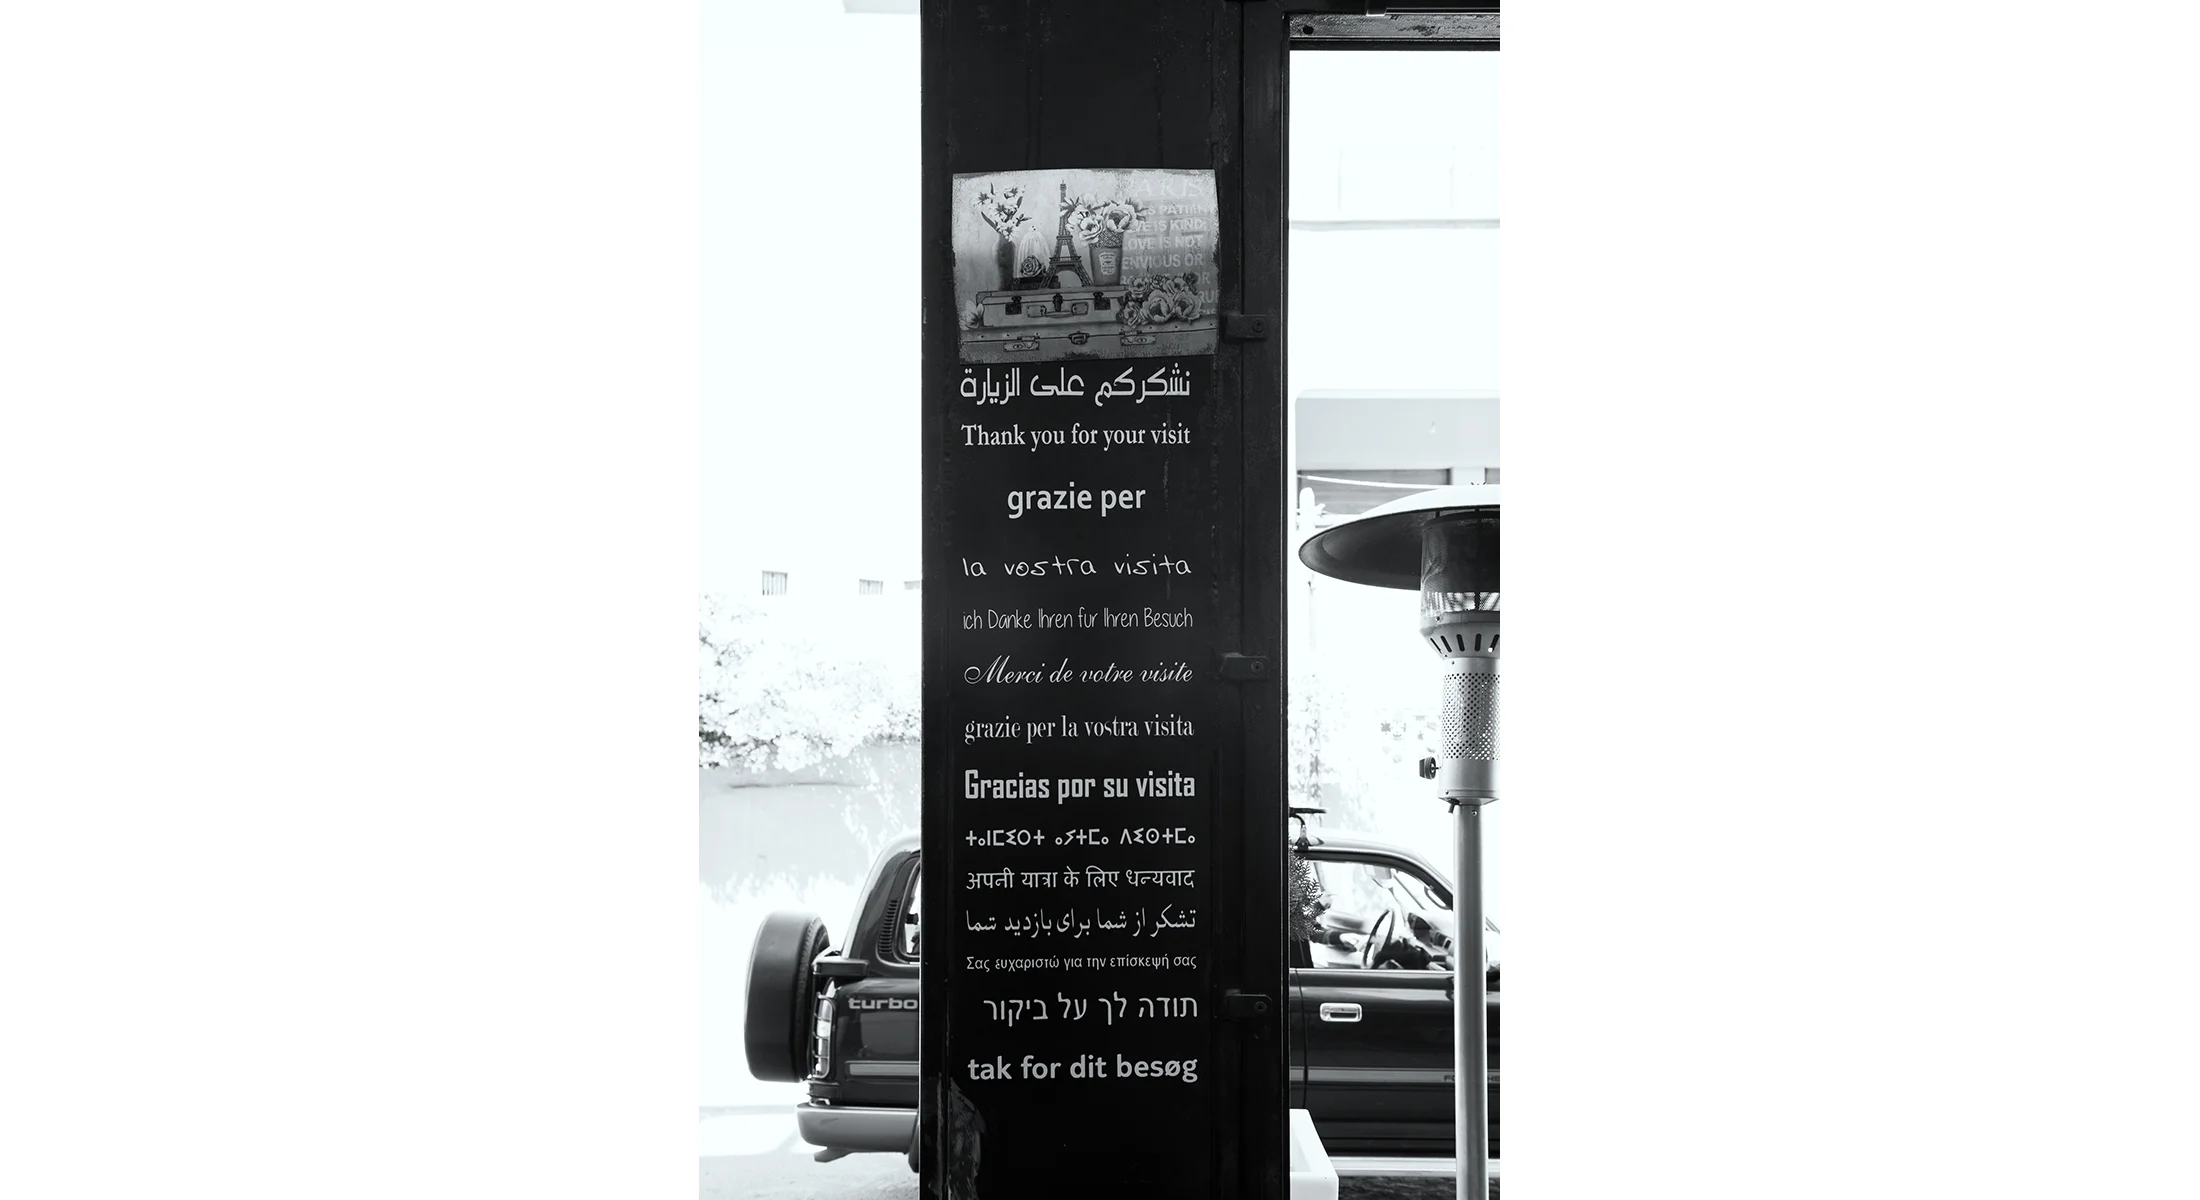 ARIS
IS KIND
OVE IS NOT
ENVIOUS OR
نشكركم على الزيارة
Thank you for your visit
grazie per
la vostra visita
ich Danke Ihren fur Ihren Besuch
Merci de votre visite
grazie per la vostra visita
Gracias por su visita
ⵜⴰⵏⵎⵉⵔⵜ ⴰⵢⵜⵎⴰ ⴷⵉⵙⵜⵎⴰ
अपनी यात्रा के लिए धन्यवाद
تشکر از شما برای بازدید شما
Σας ευχαριστώ για την επίσκεψή σας
תודה לך על ביקור
tak for dit besøg
turbo